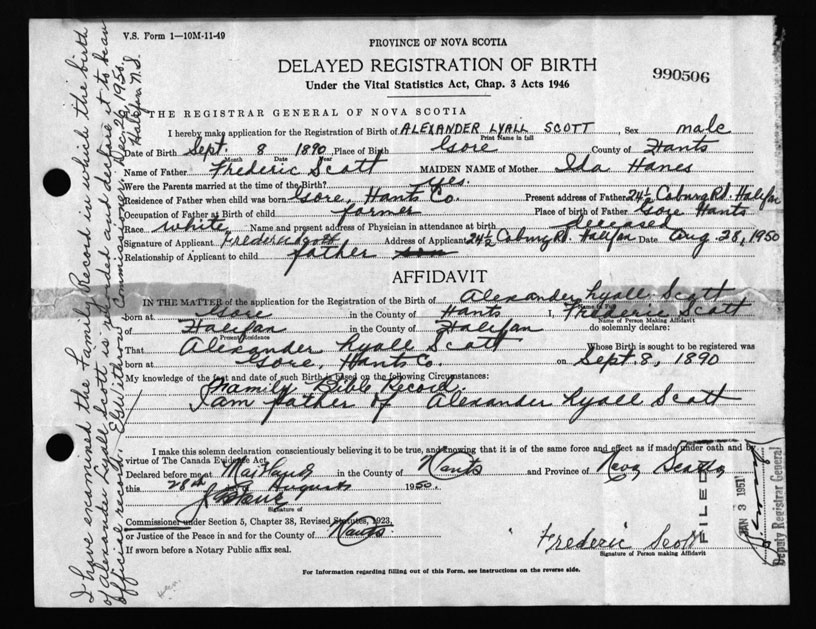 V.S. Form 1—10M-11-49
PROVINCE OF NOVA SCOTIA
DELAYED REGISTRATION OF BIRTH
Under the Vital Statistics Act, Chap. 3 Acts 1946
990506
THE REGISTRAR GENERAL OF NOVA SCOTIA
I hereby make application for the Registration of Birth of ALEXANDER LYALL SCOTT, Sex male
Print Name in full
Date of Birth Sept. 8 1890, Place of Birth Gore County of Hants
Month Date Year
Name of Father Frederic Scott MAIDEN NAME of Mother Ida Hanes
Were the Parents married at the time of the Birth? yes.
Residence of Father when child was born Gore, Hants Co. Present address of Father 24½ Coburg Rd. Halifax
Occupation of Father at Birth of child farmer Place of birth of Father Gore Hants
Race white, Name and present address of Physician in attendance at birth deceased
Signature of Applicant Frederic Scott Address of Applicant 24½ Coburg Rd. Halifax Date Aug. 28, 1950
Relationship of Applicant to child father son
AFFIDAVIT
IN THE MATTER of the application for the Registration of the Birth of Alexander Lyall Scott
Name in Full
born at Gore in the County of Hants I, Frederic Scott
Name of Person Making Affidavit
of Halifax in the County of Halifax do solemnly declare:
Present Residence
That Alexander Lyall Scott Whose Birth is sought to be registered was
born at Gore, Hants Co. on Sept 8, 1890
My knowledge of the fact and date of such Birth is Based on the following Circumstances:
Family Bible Record.
I am father of Alexander Lyall Scott
I make this solemn declaration conscientiously believing it to be true, and knowing that it is of the same force and effect as if made under oath and by
virtue of The Canada Evidence Act.
Declared before me at Maitland in the County of Hants and Province of Nova Scotia
this 28th August 1950.
Signature of
Commissioner under Section 5, Chapter 38, Revised Statutes, 1923,
or Justice of the Peace in and for the County of Hants
If sworn before a Notary Public affix seal.
Frederic Scott
Signature of Person making Affidavit
For Information regarding filling out of this Form, see instructions on the reverse side.
I have examined the Family Record in which the birth
of Alexander Lyall Scott is recorded and declare it to be an
official record. Commissioner, Dec. 26, 1950.
Halifax N.S.
FILED
JAN 3 1951
Deputy Registrar General